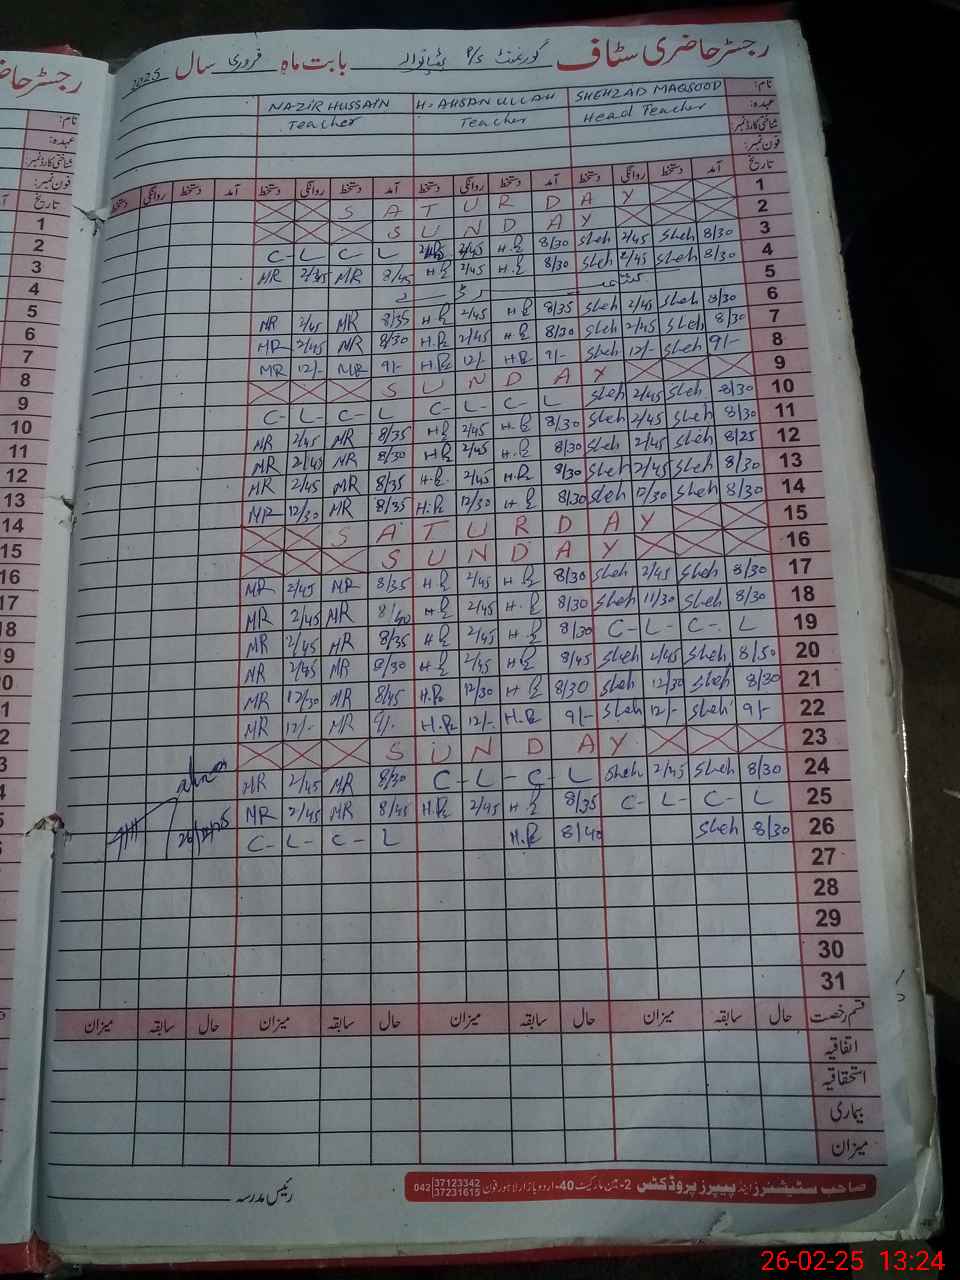 رجسٹر حاضری سٹاف گورنمنٹ P/S بابت ماہ فروری سال 2025
NAZIR HUSSAIN H. AHSAN ULLAH SHEHZAD MAQSOOD نام:
Teacher Teacher Head Teacher عہدہ:
شناختی کارڈ نمبر:
فون نمبر:
دستخط روانگی دستخط آمد دستخط روانگی دستخط آمد دستخط روانگی دستخط آمد دستخط روانگی دستخط آمد تاریخ
SATURDAY 1
SUNDAY 2
C-L-C-L 2/45 H.R 8/30 Sheh 2/45 Sheh 8/30 3
MR 2/45 MR 8/45 H.R 2/45 H.R 8/30 Sheh 2/45 Sheh 8/30 4
5
MR 2/45 MR 8/35 H.R 2/45 H.R 8/35 Sheh 2/45 Sheh 8/30 6
MR 2/45 MR 8/30 H.R 2/45 H.R 8/30 Sheh 2/45 Sheh 8/30 7
MR 12/- MR 9/- H.R 12/- H.R 9/- Sheh 12/- Sheh 9/- 8
SUNDAY 9
C-L-C-L C-L-C-L Sheh 2/45 Sheh 8/30 10
MR 2/45 MR 8/35 H.R 2/45 H.R 8/30 Sheh 2/45 Sheh 8/30 11
MR 2/45 MR 8/30 H.R 2/45 H.R 8/30 Sheh 2/45 Sheh 8/25 12
MR 2/45 MR 8/35 H.R 2/45 H.R 8/30 Sheh 2/45 Sheh 8/30 13
MR 12/30 MR 8/35 H.R 12/30 H.R 8/30 Sheh 12/30 Sheh 8/30 14
SATURDAY 15
SUNDAY 16
MR 2/45 MR 8/35 H.R 2/45 H.R 8/30 Sheh 2/45 Sheh 8/30 17
MR 2/45 MR 8/40 H.R 2/45 H.R 8/30 Sheh 11/30 Sheh 8/30 18
MR 2/45 MR 8/35 H.R 2/45 H.R 8/30 C-L-C-L 19
MR 2/45 MR 8/30 H.R 2/45 H.R 8/45 Sheh 2/45 Sheh 8/50 20
MR 12/30 MR 8/45 H.R 12/30 H.R 8/30 Sheh 12/30 Sheh 8/30 21
MR 12/- MR 9/- H.R 12/- H.R 9/- Sheh 12/- Sheh 9/- 22
SUNDAY 23
MR 2/45 MR 8/30 C-L-C-L Sheh 2/45 Sheh 8/30 24
MR 2/45 MR 8/45 H.R 2/45 H.R 8/35 C-L-C-L 25
C-L-C-L H.R 8/40 Sheh 8/30 26
27
28
29
30
31
میزان سابقہ حال میزان سابقہ حال میزان سابقہ حال میزان سابقہ حال قسم رخصت
اتفاقیہ
استحقاقیہ
بیماری
میزان
رئیس مدرسہ
صاحب سٹیشنرز اینڈ پیپرز پروڈکٹس 2-مین مارکیٹ 40-اردو بازار لاہور فون 042 37123342 37231615
26-02-25 13:24